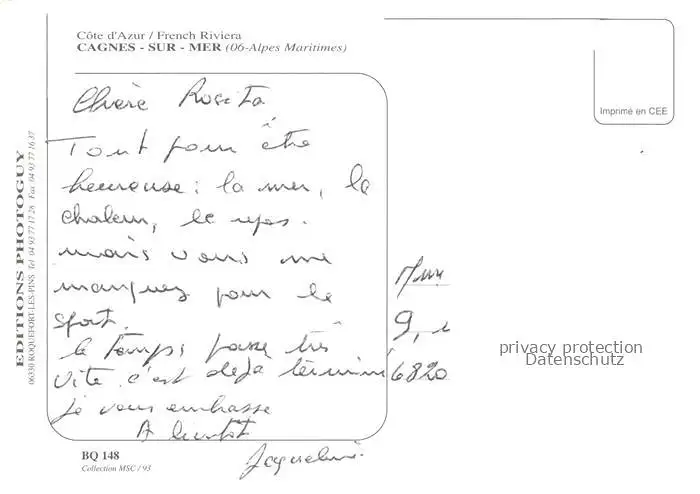 Côte d'Azur / French Riviera
CAGNES - SUR - MER (06-Alpes Maritimes)
Imprimé en CEE
EDITIONS PHOTOGUY
06330 ROQUEFORT-LES-PINS Tel 04 93 77 17 28 Fax 04 93 77 16 37
Chère Rosita
Tout pour être
heureuse : la mer, la
chaleur, le repos.
mais vous me
manquez pour le
sport.
le temps passe très
vite c'est deja terminé
je vous embrasse
A bientôt
Jacqueline
9,
6820
privacy protection
Datenschutz
BQ 148
Collection MSC / 93